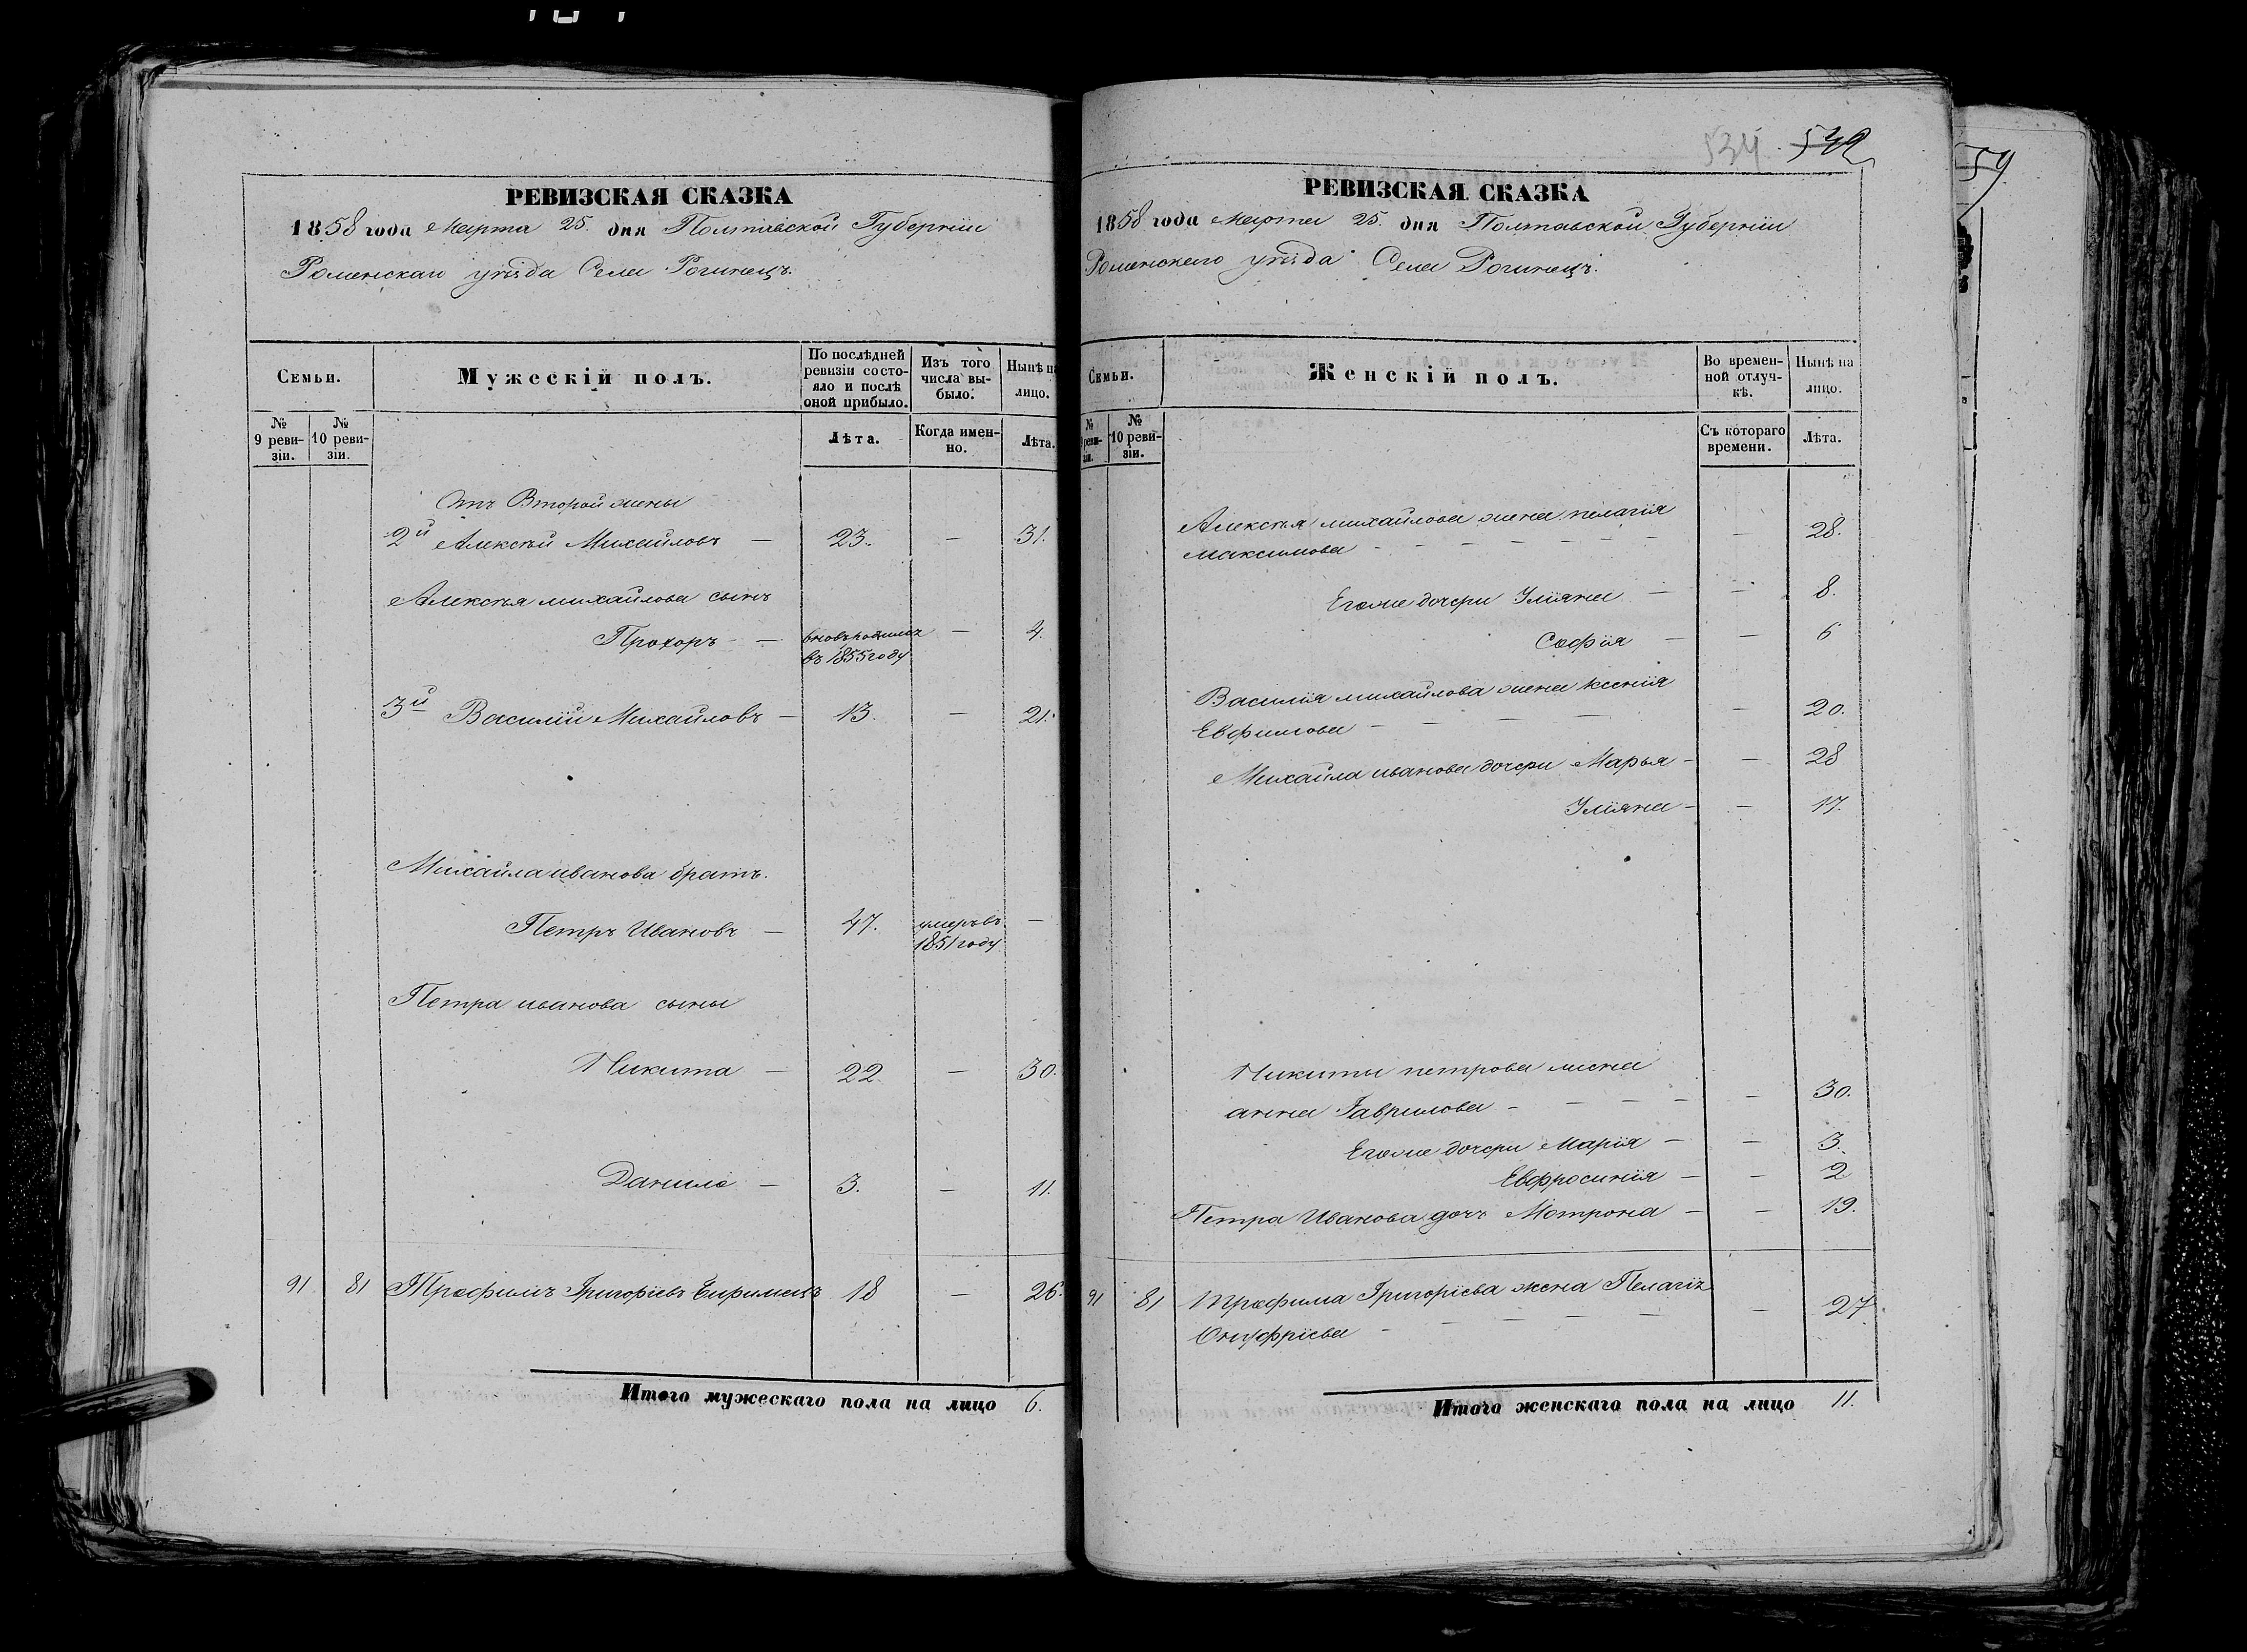 РЕВИЗСКАЯ СКАЗКА
1858 года Марта 25. дня Полтавской Губерніи
Роменскаго уѣзда Села Рогинецъ.
Семьи.
Мужескій полъ.
По послѣдней ревизіи состояло и послѣ оной прибыло.
Изъ того числа выбыло.
Нынѣ на лицо.
№ 9 ревизіи.
№ 10 ревизіи.
Лѣта.
Когда именно.
Лѣта.
Отъ Второй жены
2й Алексѣй Михайловъ — 23. — 31.
Алексѣя михайлова сынъ
Прохоръ — вновьродился — 4.
въ 1855 году
3й Василій Михайловъ — 13. — 21.
Михайла иванова братъ.
Петръ Ивановъ — 47. умеръ въ —
1851 году
Петра иванова сыны
Никита — 22 — 30.
Данило — 3. — 11.
91 81 Трофимъ Григоріевъ 18 — 26.
Итого мужескаго пола на лицо 6.
534. 532
РЕВИЗСКАЯ СКАЗКА
1858 года Марта 25. дня Полтавской Губерніи
Роменскаго уѣзда Села Рогинецъ.
Семьи.
Женскій полъ.
Во временной отлучкѣ.
Нынѣ на лицо.
№ 9 ревизіи.
№ 10 ревизіи.
Съ котораго времени.
Лѣта.
Алексѣя михайлова жена пелагія
максимова — — 28.
Егоже дочери Уліяна — — 8.
Софія — — 6
Василія михайлова жена ксенія
Евфимова — — 20.
Михайла иванова дочери Марья — — 28
Уліяна — — 17.
Никиты петрова жена
анна Гаврилова — — 30.
Егоже дочери Марія — — 3.
Евфросинія — — 2
Петра Иванова дочъ Мотрона — — 19.
91 81 Трофима Григоріева жена Пелагія
Онуфріева — — 27.
Итого женскаго пола на лицо 11.
59